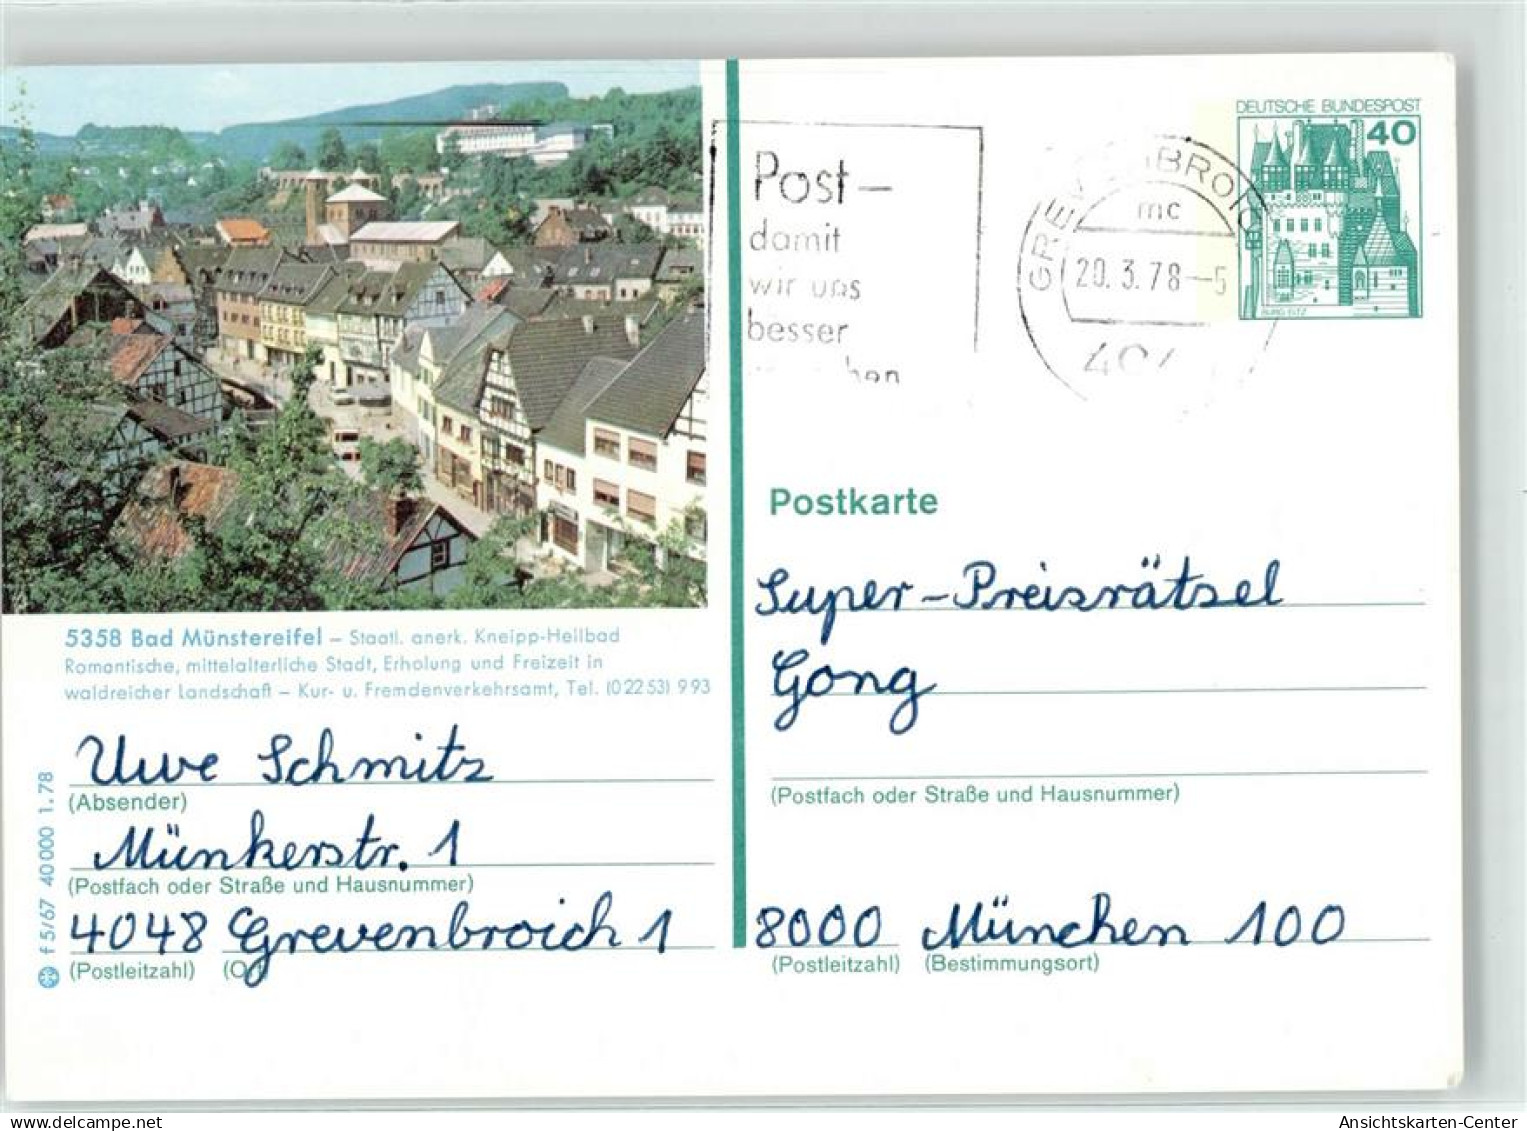 DEUTSCHE BUNDESPOST
40
BURG ELTZ
Post–
damit
wir uns
besser
mc
20.3.78–5
Postkarte
Super-Preisrätsel
Gong
(Postfach oder Straße und Hausnummer)
8000 München 100
(Postleitzahl) (Bestimmungsort)
5358 Bad Münstereifel – Staatl. anerk. Kneipp-Heilbad
Romantische, mittelalterliche Stadt, Erholung und Freizeit in
waldreicher Landschaft – Kur- u. Fremdenverkehrsamt, Tel. (02253) 993
Uwe Schmitz
(Absender)
Münkerstr. 1
(Postfach oder Straße und Hausnummer)
4048 Grevenbroich 1
(Postleitzahl)
f 5/67 40000 1.78
Ansichtskarten-Center